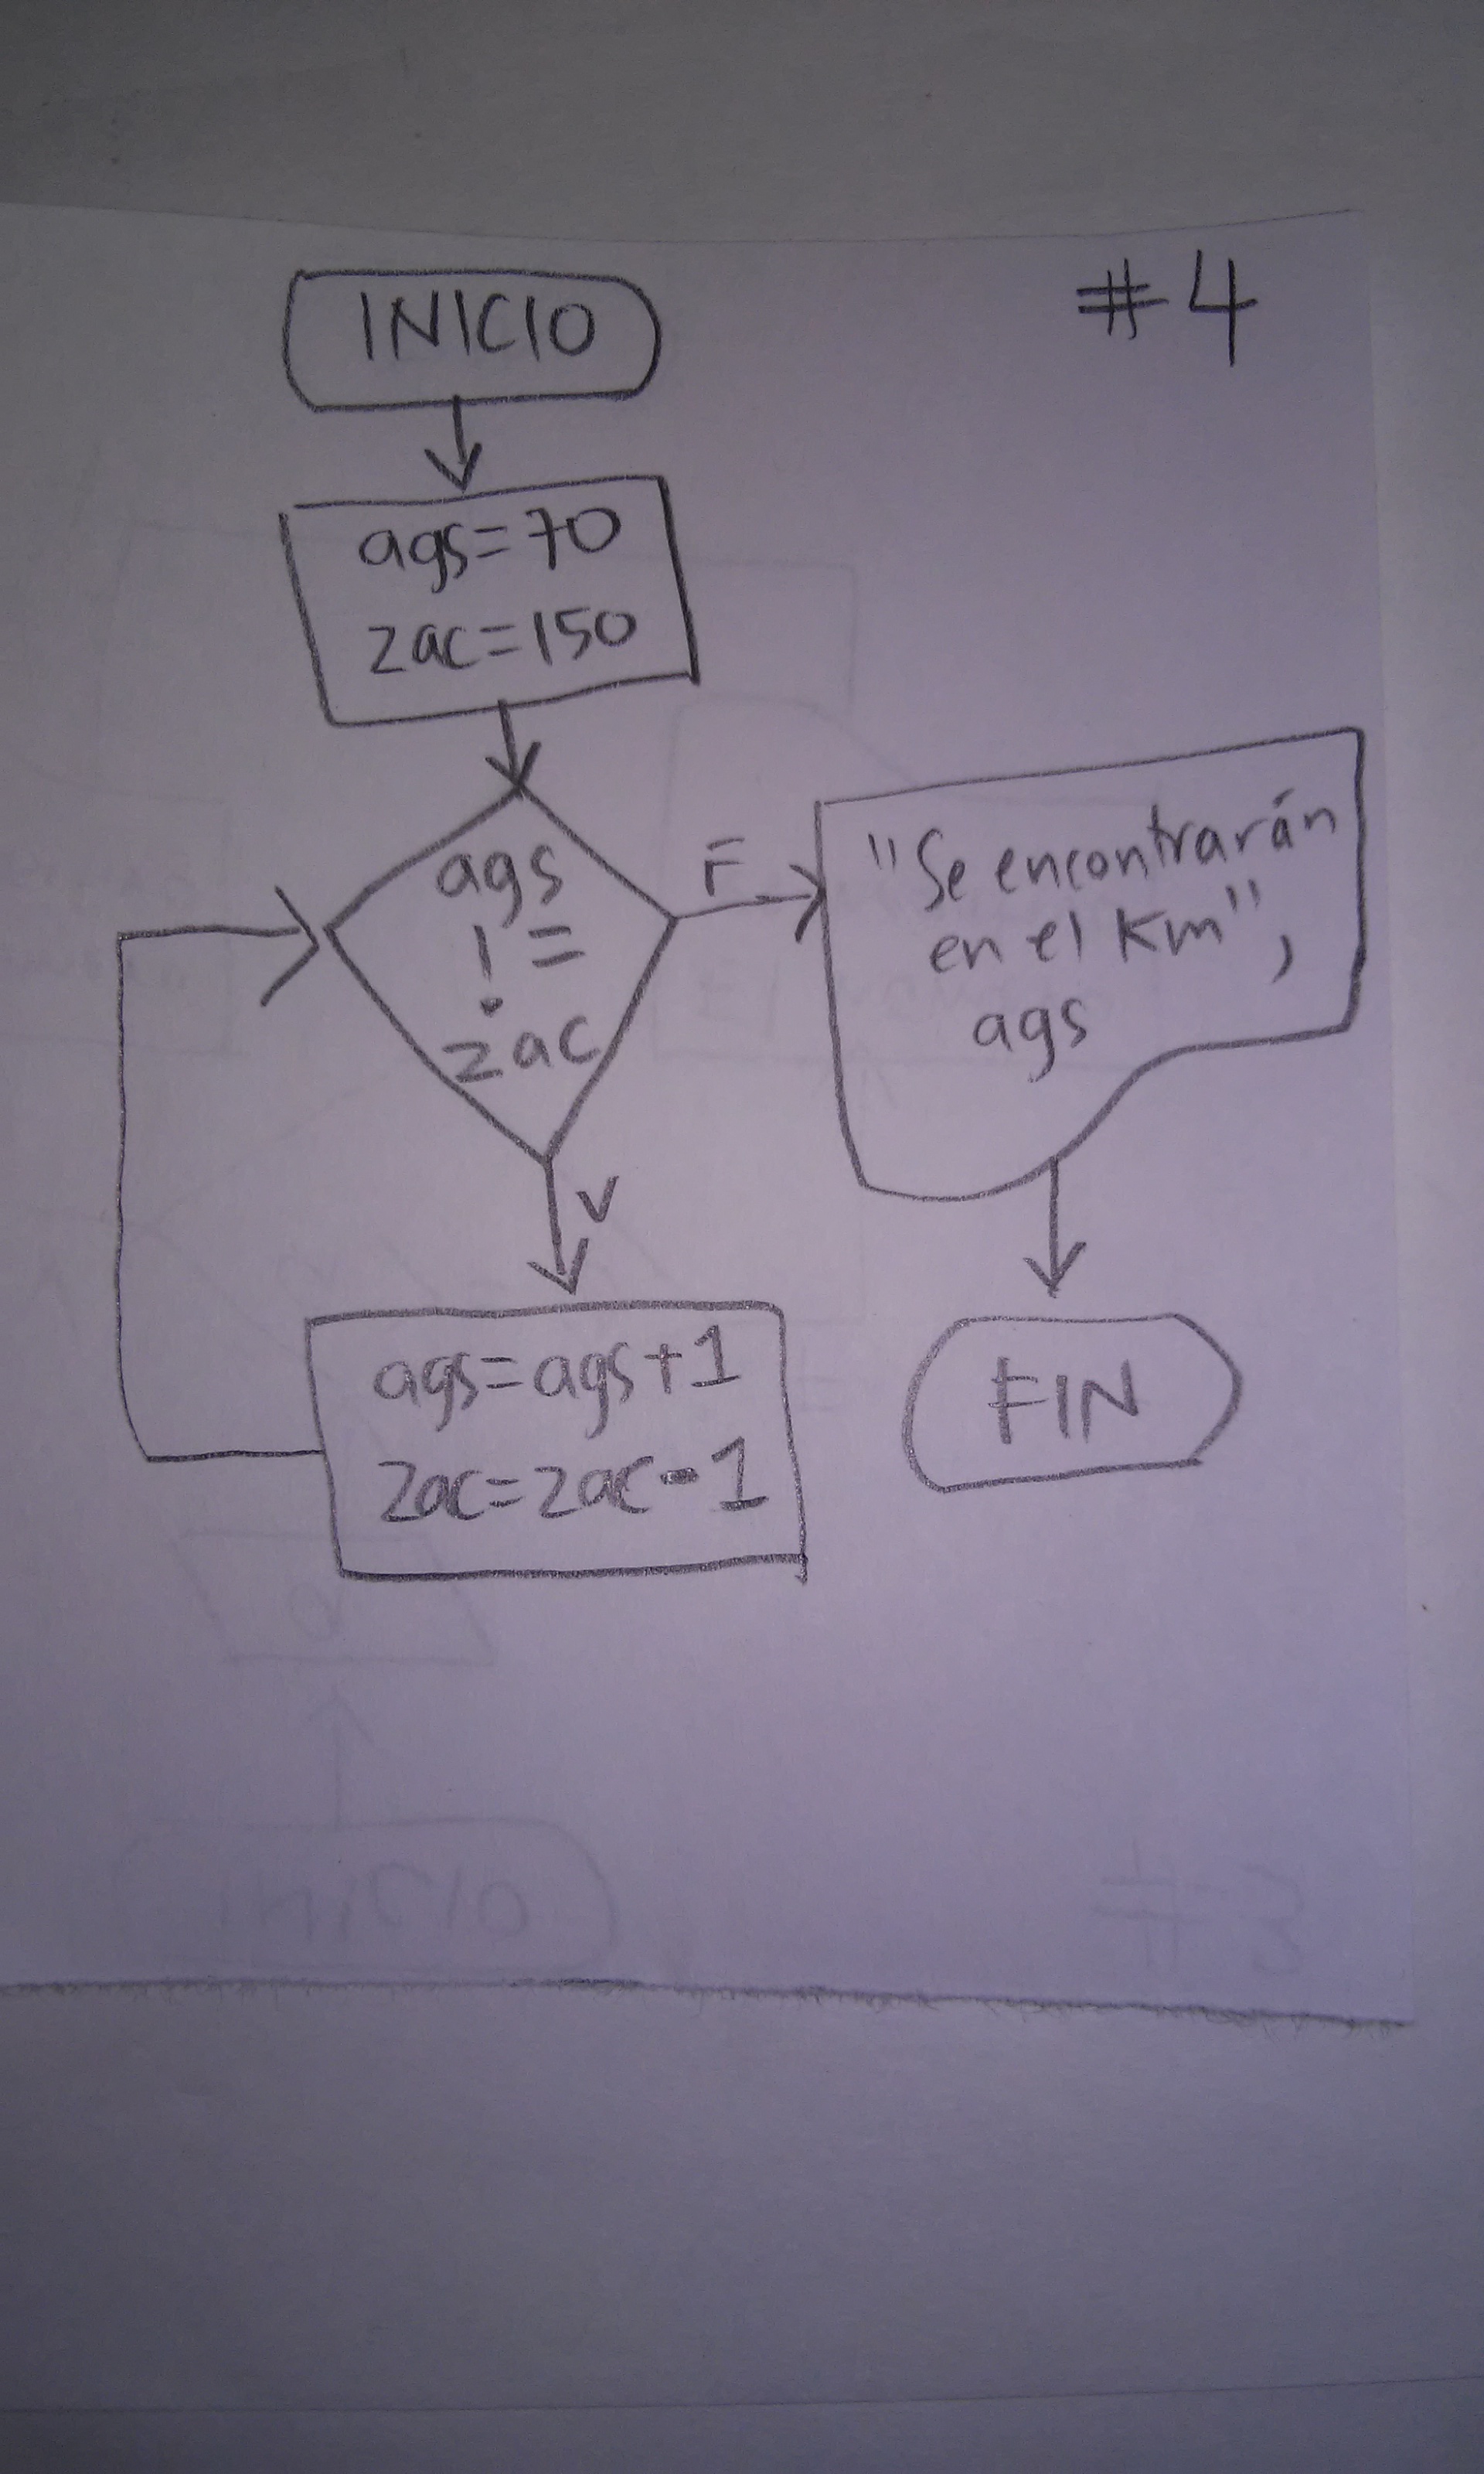 #4
INICIO
ags=70
zac=150
ags
!=
zac
F
"Se encontrarán
en el Km",
ags
V
ags=ags+1
zac=zac-1
FIN